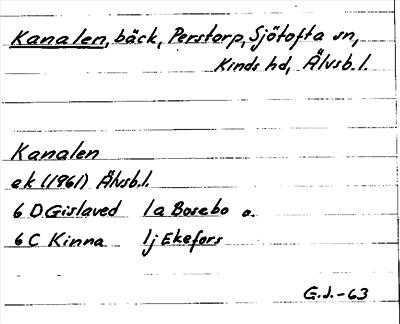 Kanalen, bäck, Perstorp, Sjötofta sn,
Kinds hd, Älvsb. l.
Kanalen
ek (1961) Älvsb. l.
6 D Gislaved 1a Bosebo o.
6 C Kinna 1j Ekefors
G.J.-63